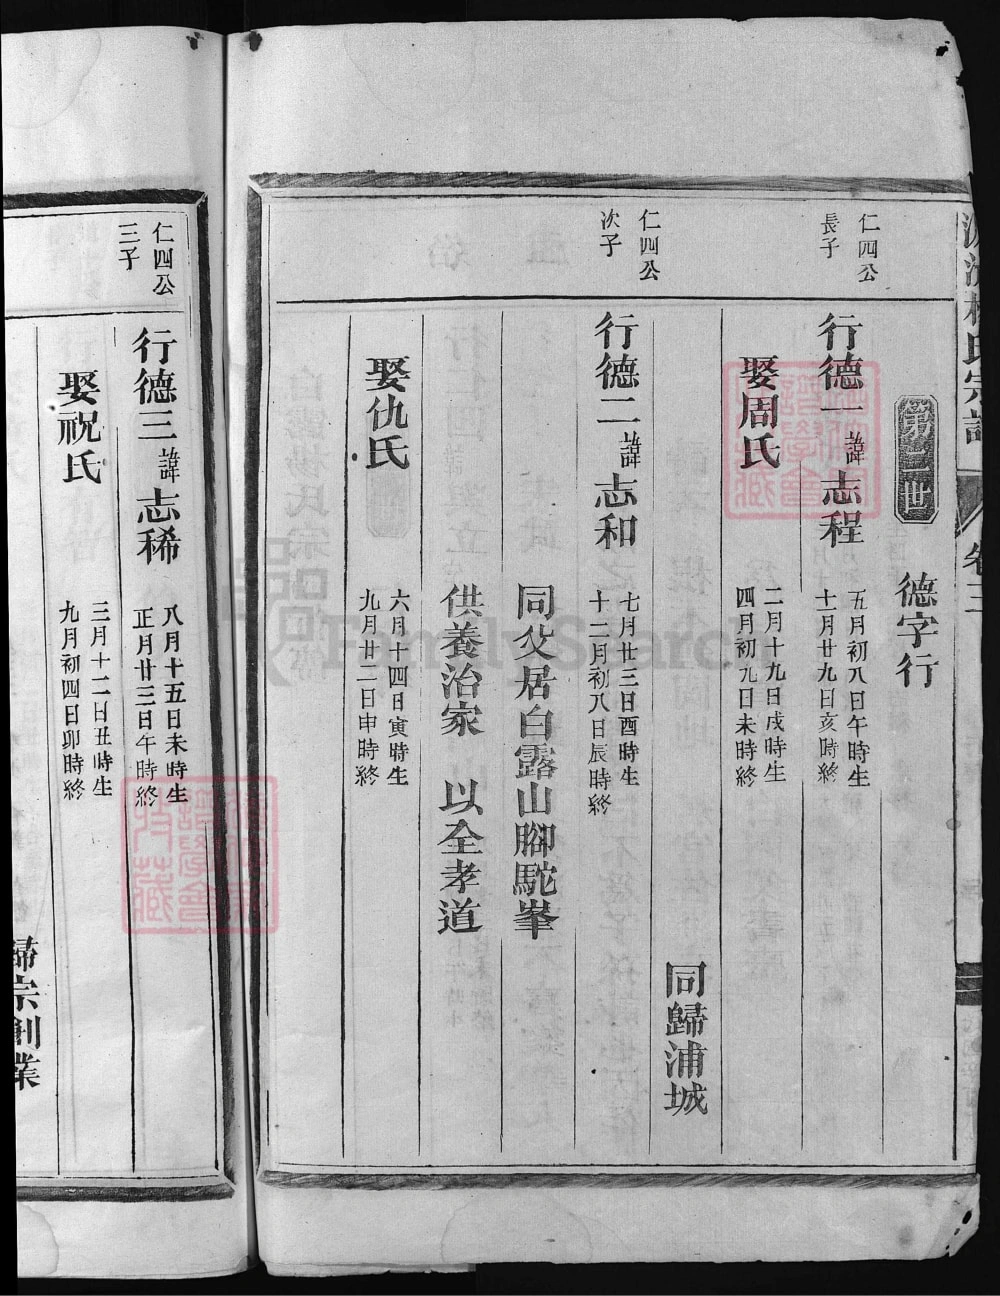 氏宗譜
卷三
第二世
德字行
仁四公
長子
行德一諱志程
五月初八日午時生
十一月廿九日亥時終
娶周氏
二月十九日戌時生
四月初九日未時終
同歸浦城
仁四公
次子
行德二諱志和
七月廿三日酉時生
十二月初八日辰時終
同父居白露山腳駝峯
供養治家 以全孝道
娶仇氏
六月十四日寅時生
九月廿二日申時終
仁四公
三子
行德三諱志稀
八月十五日未時生
正月廿三日午時終
娶祝氏
三月十二日丑時生
九月初四日卯時終
歸宗創業
FamilySearch